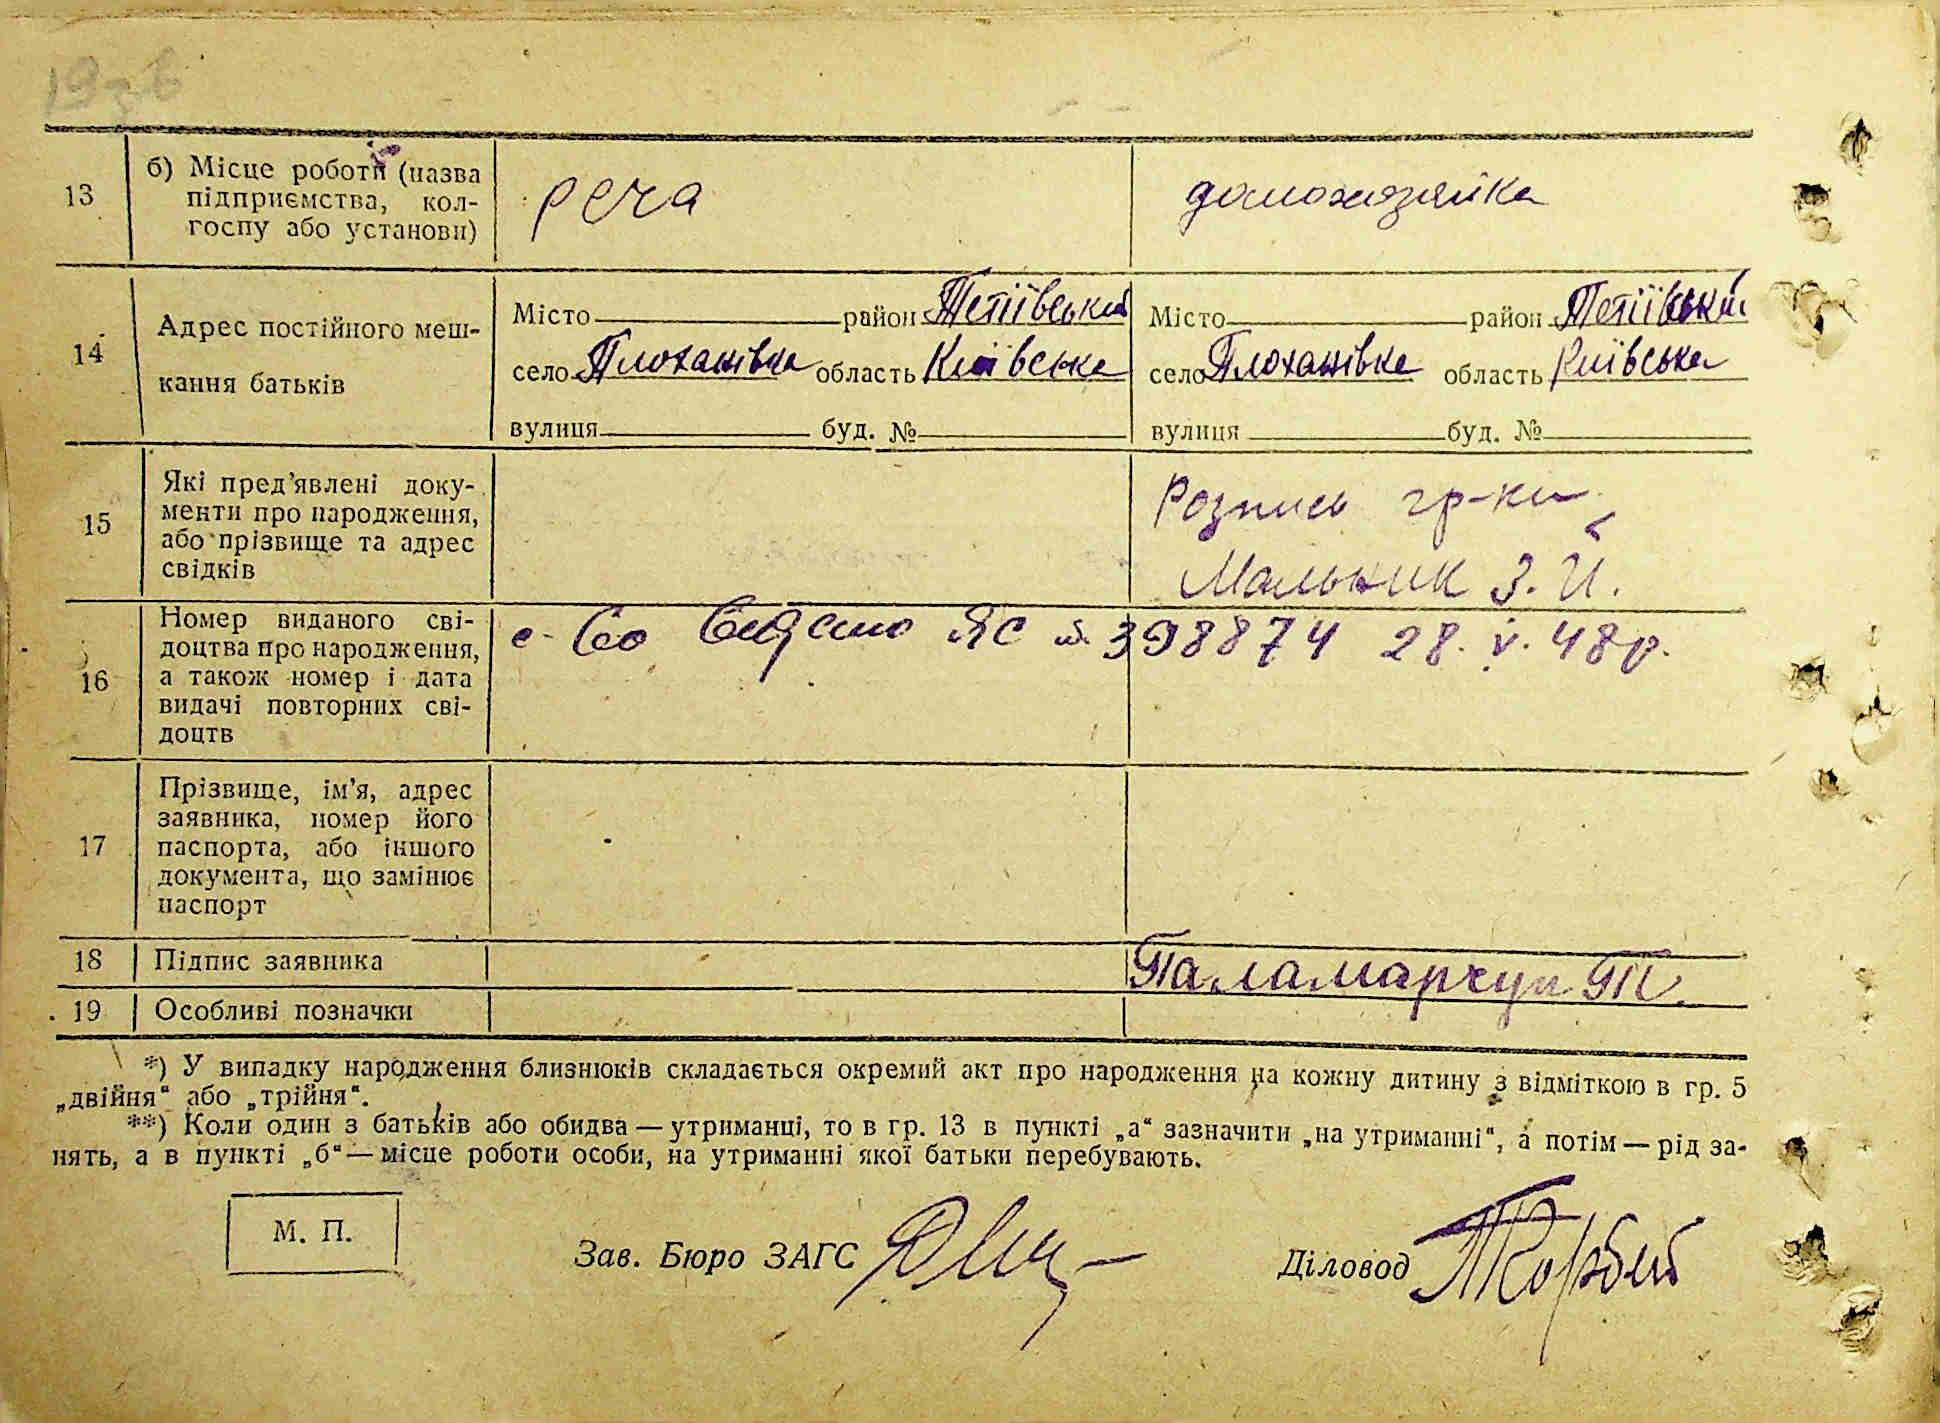 1936
13
б) Місце роботи (назва
підприємства, кол-
госпу або установи)
реча
домохазяйка
14
Адрес постійного меш-
кання батьків
Місто район Тетіївський
село Плоханівка область Київська
вулиця буд. №
Місто район Тетіївський
село Плоханівка область Київська
вулиця буд. №
15
Які пред’явлені доку-
менти про народження,
або прізвище та адрес
свідків
Розпись гр-ки
Мальник З. И.
16
Номер виданого сві-
доцтва про народження,
а також номер і дата
видачі повторних сві-
доцтв
с-во видано ЯС № 398874 28. V. 48р.
17
Прізвище, ім’я, адрес
заявника, номер його
паспорта, або іншого
документа, що замінює
паспорт
18
Підпис заявника
Паламарчук П.
19
Особливі позначки
*) У випадку народження близнюків складається окремий акт про народження на кожну дитину з відміткою в гр. 5
„двійня“ або „трійня“.
**) Коли один з батьків або обидва — утриманці, то в гр. 13 в пункті „а“ зазначити „на утриманні“, а потім — рід за-
нять, а в пункті „б“ — місце роботи особи, на утриманні якої батьки перебувають.
М. П.
Зав. Бюро ЗАГС
Діловод